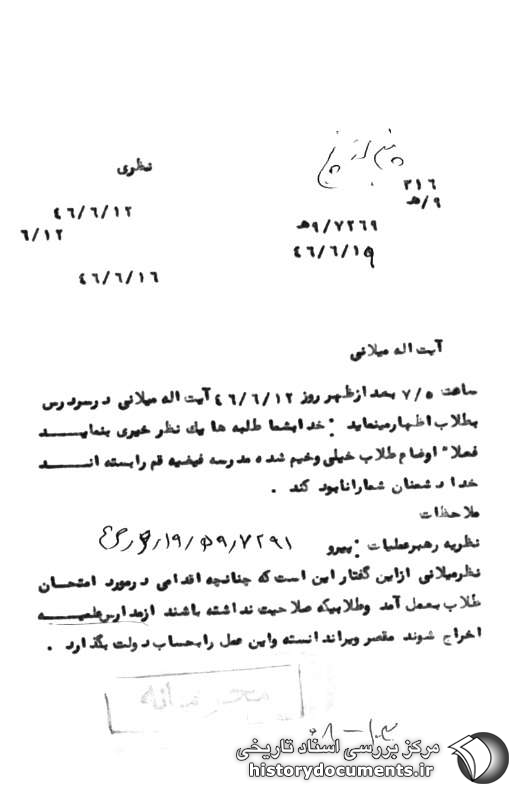 نظری
۳۱۶
۹/هـ
۴۶/۶/۱۲
۹/۷۲۶۹هـ
۶/۱۲
۴۶/۶/۱۹
۴۶/۶/۱۶
آیت اله میلانی
ساعت ۷/۵ بعد ازظهر روز ۴۶/۶/۱۲ آیت اله میلانی درسودرس
بطلاب اظهارمینماید : خدابشما طلبه ها یك نظر خیری بنمایـــد
فعلا" اوضاع طلاب خیلی وخیم شده مدرسه فیضیه قم رابسته انــــد
خدا دشمنان شمارانابود کند .
ملاحظات
نظریه رهبرعملیات : پیرو ۹/۷۲۹۱هـ
نظرمیلانی ازاین گفتار این است که چنانچه اقدامی درمورد امتحــان
طلاب بعمل آمد وطلابیکه صلاحیت نداشته باشند ازمدارس علمیـــه
اخراج شوند مقصر ویراندانسته واین عمل رابحساب دولت بگذارد .
محرمانه
مرکز بررسی اسناد تاریخی
historydocuments.ir